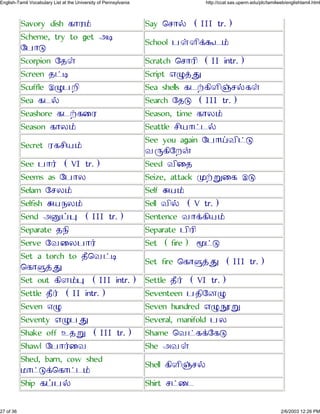 English-Tamil Vocabulary List at the University of Pennsylvania http://ccat.sas.upenn.edu/plc/tamilweb/englishtamil.html
Savory dish காரம் Say சொல் ( III tr.)
Scheme, try to get அடி போடு School பள்ளிக்கூடம்
Scorpion தேள் Scratch சொரி ( II intr.)
Screen தட்டி Script எழுத்து
Scuffle இழுபறி Sea shells கடற்கிளிஞ்சல்கள்
Sea கடல் Search தேடு ( III tr.)
Seashore கடற்கரை Season, time காலம்
Season காலம் Seattle சியாட்டல்
Secret ரகசியம் See you again போய்விட்டு வருகிறேன்
See பார் ( VI tr.) Seed விதை
Seems as போல Seize, attack முற்றுகை இடு
Selam சேலம் Self சுயம்
Selfish சுயநலம் Sell வில் ( V tr.)
Send அனுப்பு ( III tr.) Sentence வாக்கியம்
Separate தனி Separate பிரி
Serve வேலைபார் Set (fire) மூட்டு
Set a torch to தீவெட்டி கொளுத்து Set fire கொளுத்து ( III tr.)
Set out கிளம்பு ( III intr.) Settle தீர் ( VI tr.)
Settle தீர் ( II intr.) Seventeen பதினேழு
Seven ஏழு Seven hundred எழுநூறு
Seventy எழுபது Several, manifold பல
Shake off உதறு ( III tr.) Shame வெட்கக்கேடு
Shawl போர்வை She அவள்
Shed, barn, cow shed மாட்டுக்கொட்டம் Shell கிளிஞ்சல்
Ship கப்பல் Shirt சட்டை
27 of 36 2/6/2003 12:28 PM